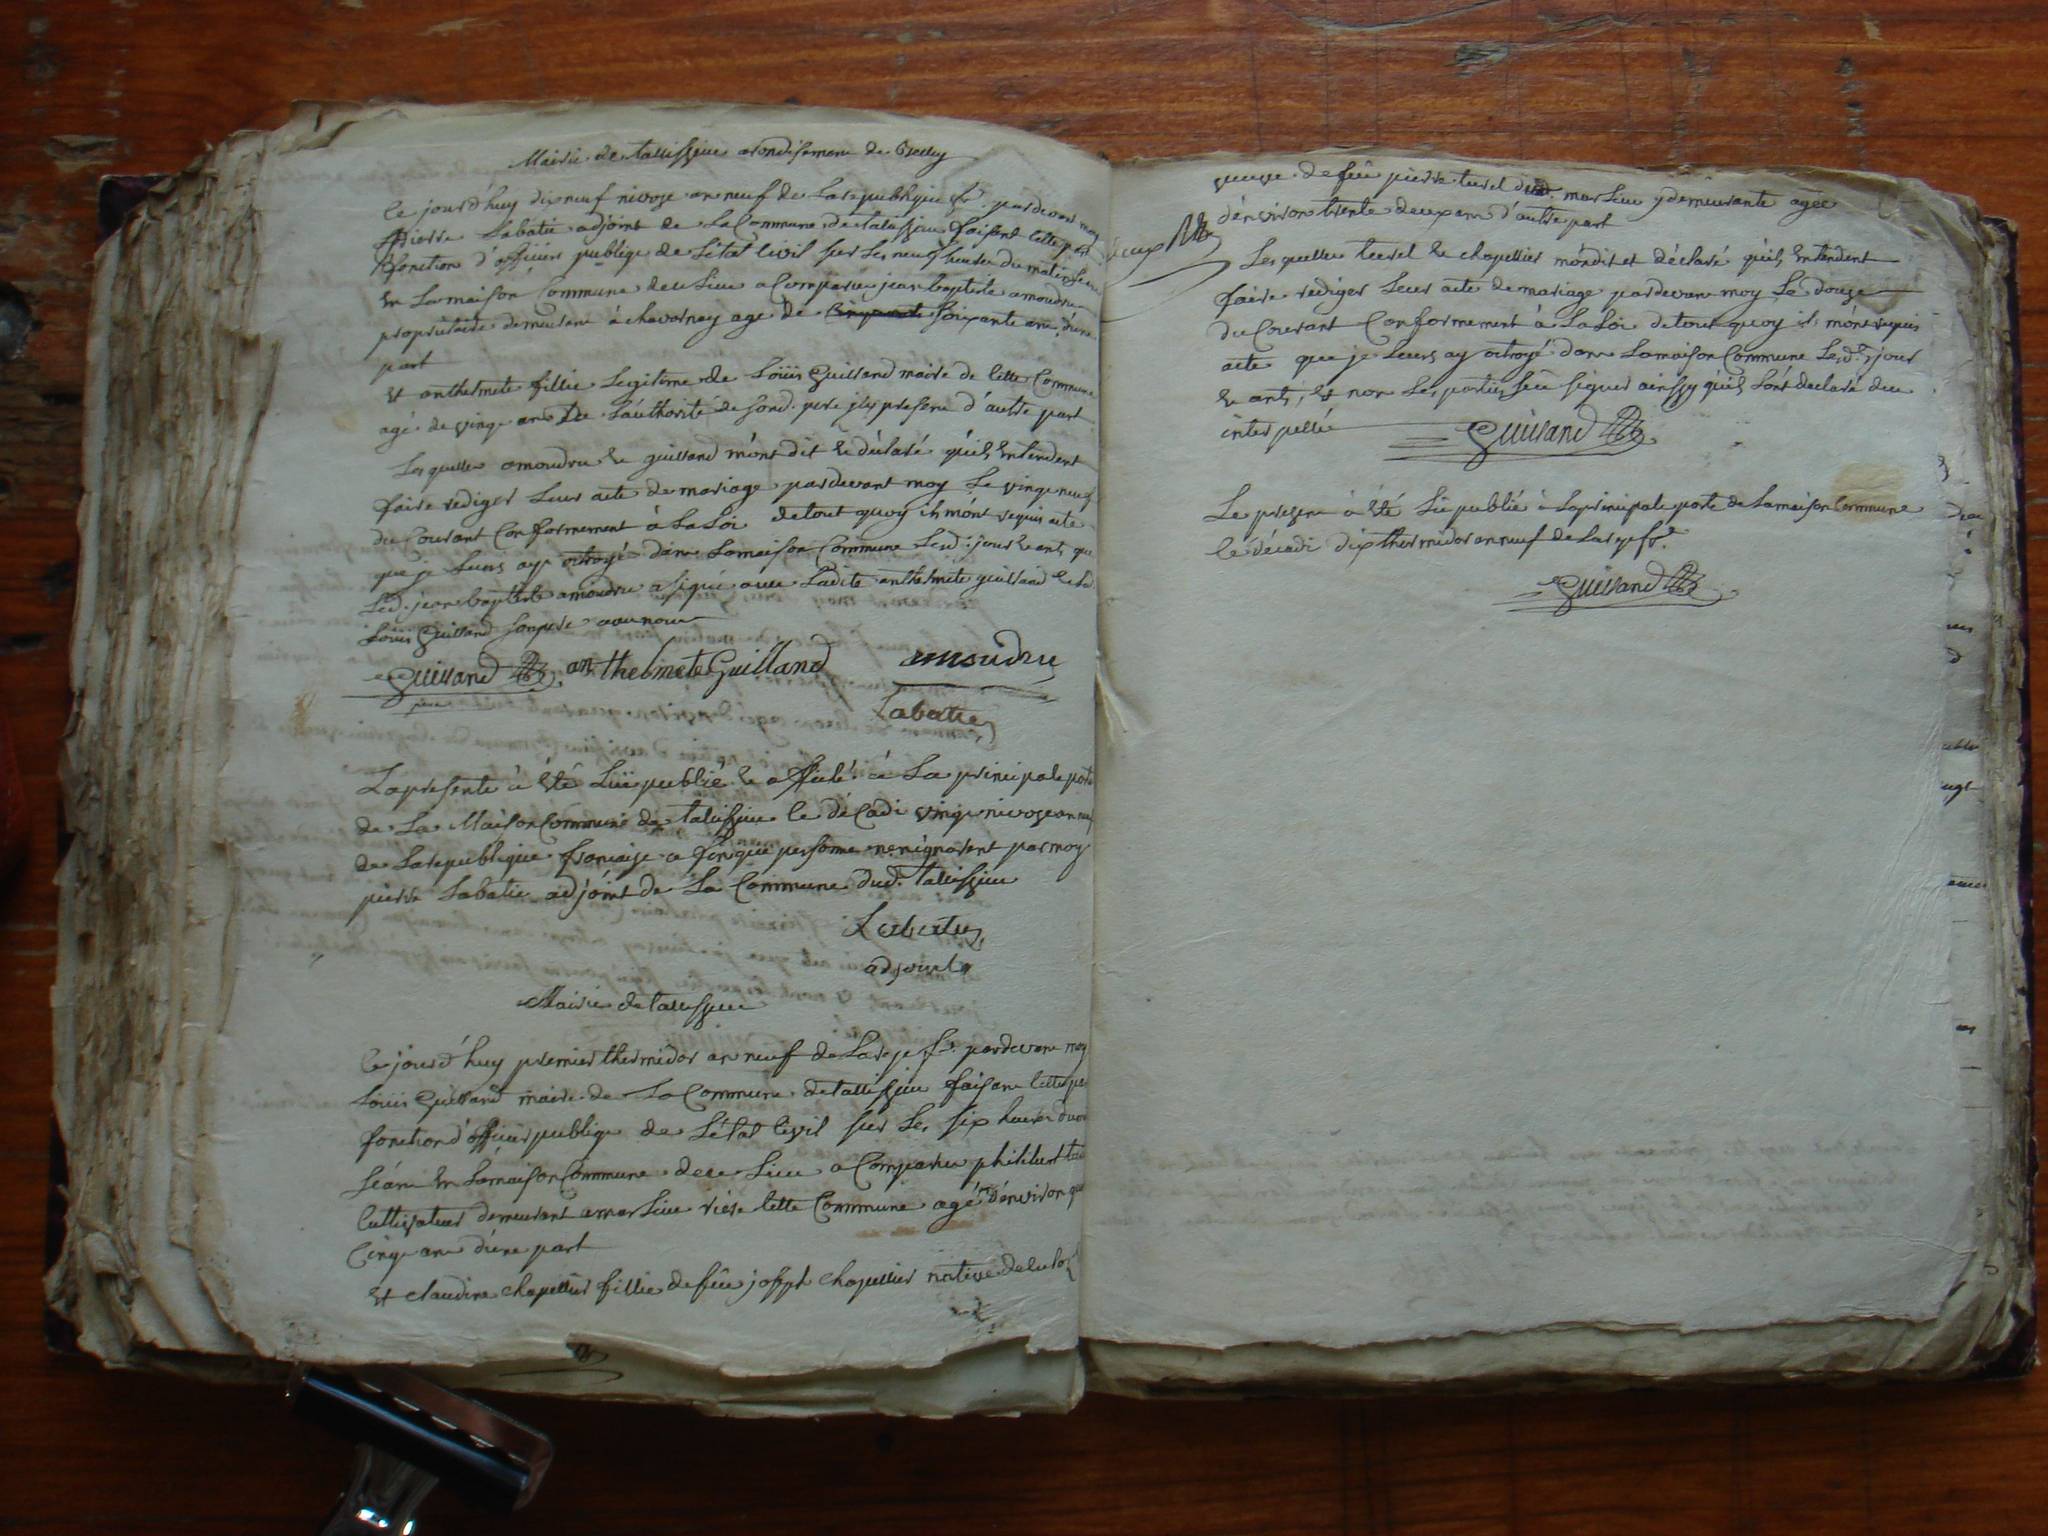 Mairie de tallissieu arondisement de Belley
Ce jourd'huy dix neuf nivoze an neuf de La republique fr. pardevant moy
Pierre Labatie adjoint de La Commune de talissieu faisant cette part
fonction d'officier publique de L'état Civil sur Les neuf heures du matin
en La maison Commune de ce Lieu a Comparu jean baptiste amoudru
propriétaire demeurant à chavornay age de Cinquante soixante ans d'une
part
et anthelmete fillie Legitime de Loüis Guilland maire de cette Commune
agé de vingt ans de L'authorité de sond. pere jcy present d'autre part
Les quelles amoudru et guilland m'ont dit et déclaré qu'ils entendent
faire rediger Leur acte de mariage pardevant moy Le vingt neuf
du Courant Conformement à La Loi de tout quoy ils m'ont requis acte
que je Leurs ay octroyé dans La maison Commune Lesd. jour et ans que
Led. jean baptiste amoudru a signé avec Ladite anthelmete guilland et Led.
Loüis Guilland son pere avec nous
Guilland anthelmete Guilland amoudru
pere
Labatie
La presente à été Lüe publié et affiché à La principale porte
de La Maison Commune de talissieu le décadi vingt nivoze an neuf
de La republique française a fin que personne n'en ignorent par moy
pierre Labatie adjoint de La Commune dud. talissieu
Labatie
adjoint
Mairie de talissieu
Ce jourd'huy premier thermidor an neuf de La rep. fr. pardevant moy
Loüis Guilland maire de La Commune de tallissieu faisant cette par
fonction d'officier publique de L'état Civil sur Les six heures du
séant en La maison Commune de ce Lieu a Comparu philibert
Cultivateur demeurant a marlieu riere Cette Commune agé d'environ
Cinq ans d'une part
et Claudine chapellier fillie de feu joseph chapellier native de
veuve de feu pierre turel dud. marlieu y demeurante agée
d'environ trente deux ans d'autre part
Les quelles turel et chapellier m'ondit et déclaré qu'ils entendent
faire rediger Leur acte de mariage pardevant moy Le douze
du Courant Conformement à La Loi de tout quoy ils m'ont requis
acte que je Leurs ay octroyé dans La maison Commune Lesd. jour
et ans, et non Les parties sçû signer ainssy qu'ils L'ont declaré de ce
interpellé
Guilland
Le present à été Lü publié à La principale porte de La maison Commune
le décadi dix thermidor an neuf de La rep. fr.
Guilland